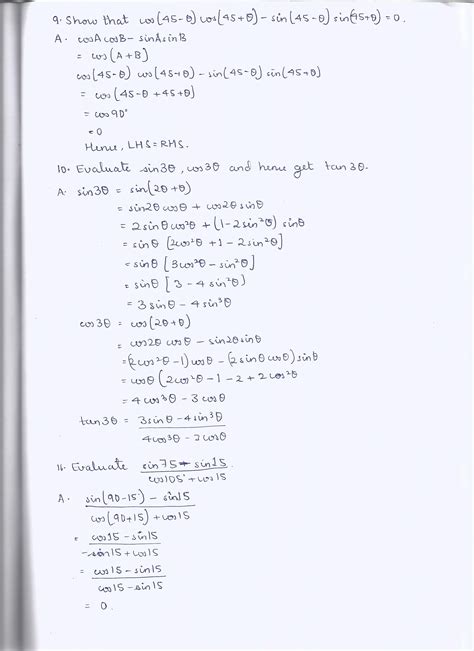 9. Show that cos(45-θ) cos(45+θ) - sin(45-θ) sin(45+θ) = 0.
A. cosA cosB - sinA sinB
= cos(A+B)
cos(45-θ) cos(45+θ) - sin(45-θ) sin(45+θ)
= cos(45-θ+45+θ)
= cos90°
=0
Hence, LHS = RHS.
10. Evaluate sin3θ, cos3θ and hence get tan3θ.
A. sin3θ = sin(2θ+θ)
= sin2θ cosθ + cos2θ sinθ
= 2sinθ cos²θ + (1-2sin²θ) sinθ
= sinθ [2cos²θ + 1 - 2sin²θ]
= sinθ [3cos²θ - sin²θ]
= sinθ [3 - 4sin²θ)
= 3sinθ - 4sin³θ
cos3θ = cos(2θ+θ)
= cos2θ cosθ - sin2θ sinθ
= (2cos²θ-1) cosθ - (2sinθ cosθ) sinθ
= cosθ (2cos²θ - 1 - 2 + 2cos²θ
= 4cos³θ - 3cosθ
tan3θ = 3sinθ - 4sin³θ
4cos³θ - 2cosθ
11. Evaluate sin75 - sin15
cos105° + cos15
A. sin(90-15°) - sin15
cos(90+15) + cos15
= cos15 - sin15
-sin15 + cos15
= cos15 - sin15
cos15 - sin15
= 0.